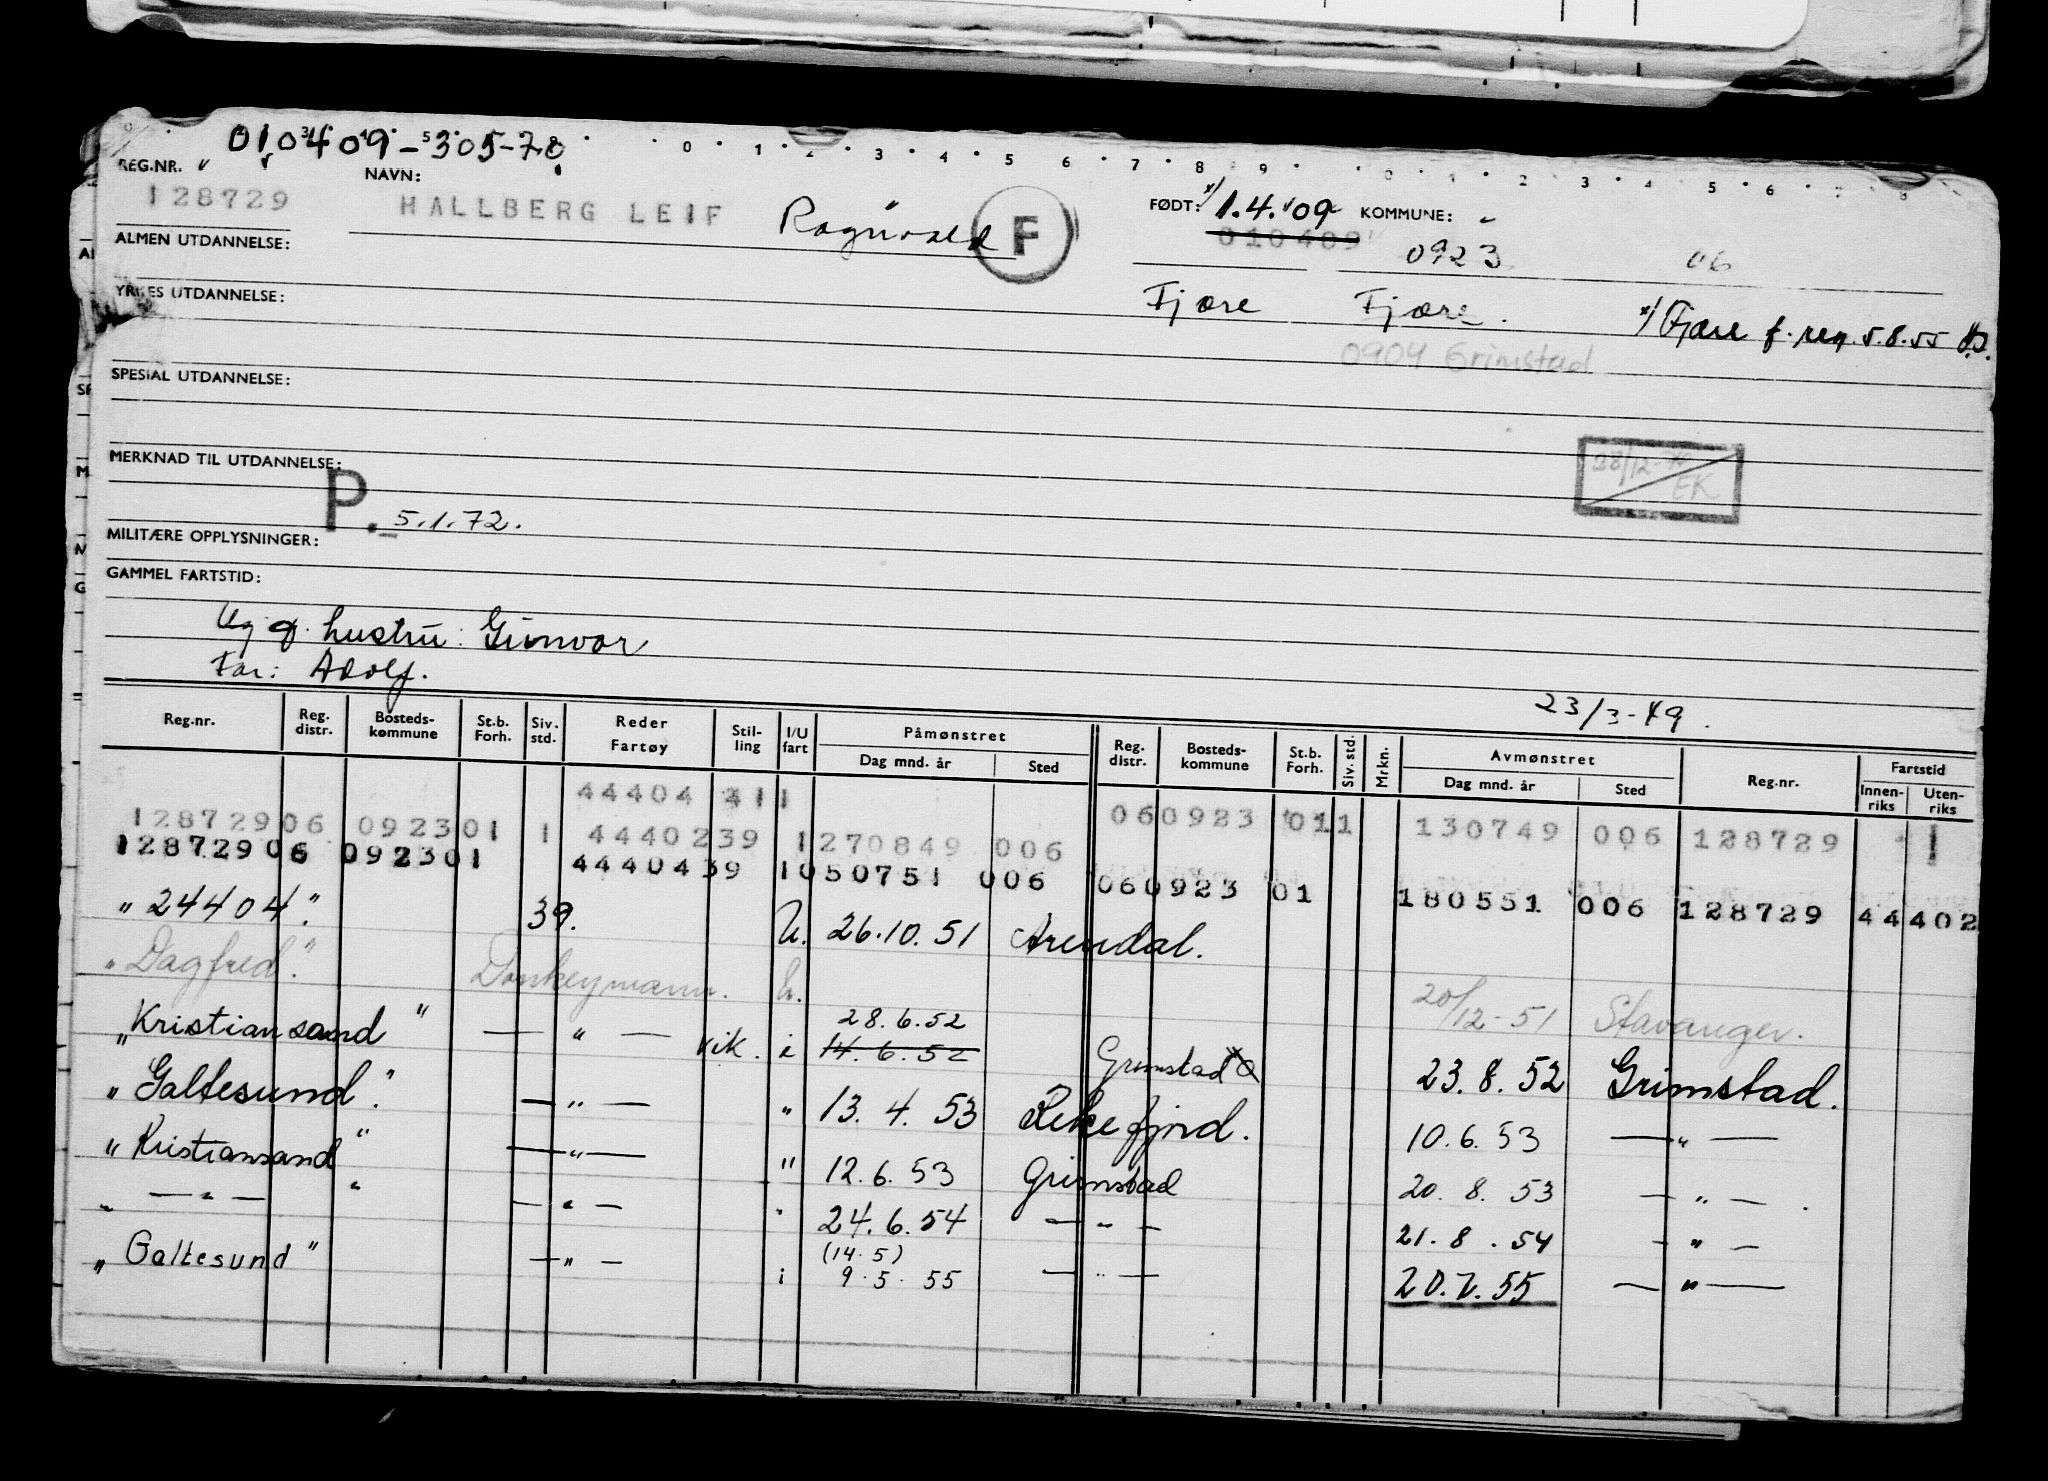 010409-305-70
0 1 2 3 4 5 6 7 8 9 0 1 2 3 4 5 6 7 8
REG.NR. NAVN: FØDT: x/ 1.4.09 KOMMUNE:
128729 HALLBERG LEIF Ragnvald F 010409 0923 06
ALMEN UTDANNELSE:
YRKES UTDANNELSE: Fjære Fjære. x/ Fjære f. reg. 5.8.55
0904 Grimstad
SPESIAL UTDANNELSE:
MERKNAD TIL UTDANNELSE: 28/12-
EK
P. 5.1.72.
MILITÆRE OPPLYSNINGER:
GAMMEL FARTSTID:
Ug. g. hustru: Gunvor
Far: Adolf.
23/3-49.
Reg.nr. Reg. distr. Bosteds-kommune St.b. Forh. Siv. std. Reder Fartøy Stil-ling I/U fart Påmønstret Dag mnd. år Sted Reg. distr. Bosteds-kommune St.b. Forh. Siv. std. Mrkn. Avmønstret Dag mnd. år Sted Reg.nr. Fartstid Innen-riks Uten-riks
44404 311 060923 011 130749 006 128729 1
128729 06 0923 01 1 44402 39 1 270849 006
128729 06 0923 01 44404 39 1 050751 006 060923 01 180551 006 128729 44 402
"24404" 39. U. 26.10.51 Arendal.
"Dagfred" Donkeymann. U. 20/12-51 Stavanger.
"Kristiansand" — " — vik. i 28.6.52 Grimstad 23.8.52 Grimstad.
14.6.52
"Galtesund" — " — " 13.4.53 Rekefjord. 10.6.53 — " —
"Kristiansand" — " — " 12.6.53 Grimstad 20.8.53 — " — .
" — " — " — " — " 24.6.54 — " — 21.8.54 — " —
"Galtesund" — " — i (14.5) 9.5.55 — " — 20.7.55 — " —